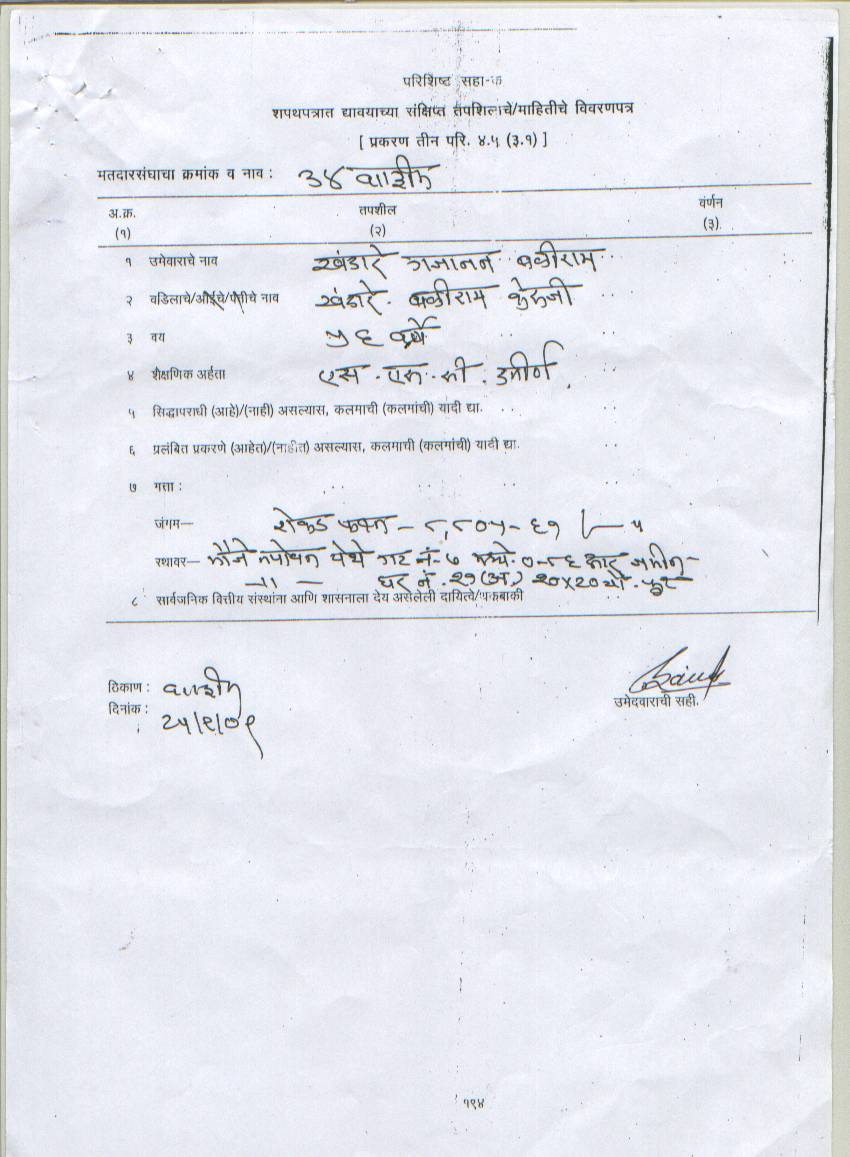 परिशिष्ट सहा-क
शपथपत्रात द्यावयाच्या संक्षिप्त तपशिलाचे/माहितीचे विवरणपत्र
[ प्रकरण तीन परि. ४.५ (३.१) ]
मतदारसंघाचा क्रमांक व नाव : ३४ वाशीम
अ.क्र. तपशील वर्णन
(१) (२) (३)
१ उमेवाराचे नाव खंडारे गजानन बळीराम
२ वडिलाचे/आईचे/पतीचे नाव खंडारे बळीराम
३ वय ५६ वर्षे
४ शैक्षणिक अर्हता एस. एस. सी. उत्तीर्ण
५ सिद्धापराधी (आहे)/(नाही) असल्यास, कलमाची (कलमांची) यादी द्या.
६ प्रलंबित प्रकरणे (आहेत)/(नाहीत) असल्यास, कलमाची (कलमांची) यादी द्या.
७ मत्ता :
जंगम— रोकड
स्थावर— मौजे तपोवन येथे गट नं. ७ मध्ये ०-८६ आर जमीन
—॥— घर नं. २१ (अ) २०x२० चौ. फुट
८ सार्वजनिक वित्तीय संस्थांना आणि शासनाला देय असलेली दायित्वे/थकबाकी
ठिकाण : वाशीम
दिनांक : २५/९/०९
उमेदवाराची सही.
१९४